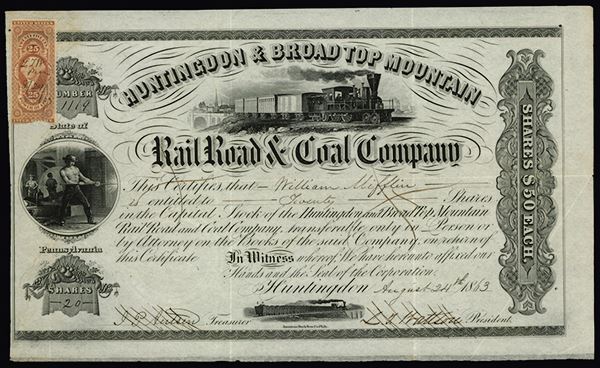 UNITED STATES
25
25 25
NUMBER
1119
State of
Pennsylvania
SHARES
- 20 -
HUNTINGDON & BROAD TOP MOUNTAIN
Rail Road & Coal Company
This Certifies that - William Mifflin
is entitled to Twenty Shares
in the Capital Stock of the Huntingdon and Broad Top Mountain
Rail Road and Coal Company, transferable only in Person or
by Attorney on the Books of the said Company, on return of
this Certificate In Witness whereof, We have hereunto affixed our
Hands and the Seal of the Corporation.
Huntingdon August 24th 1863
Treasurer
President.
SHARES $50 EACH.